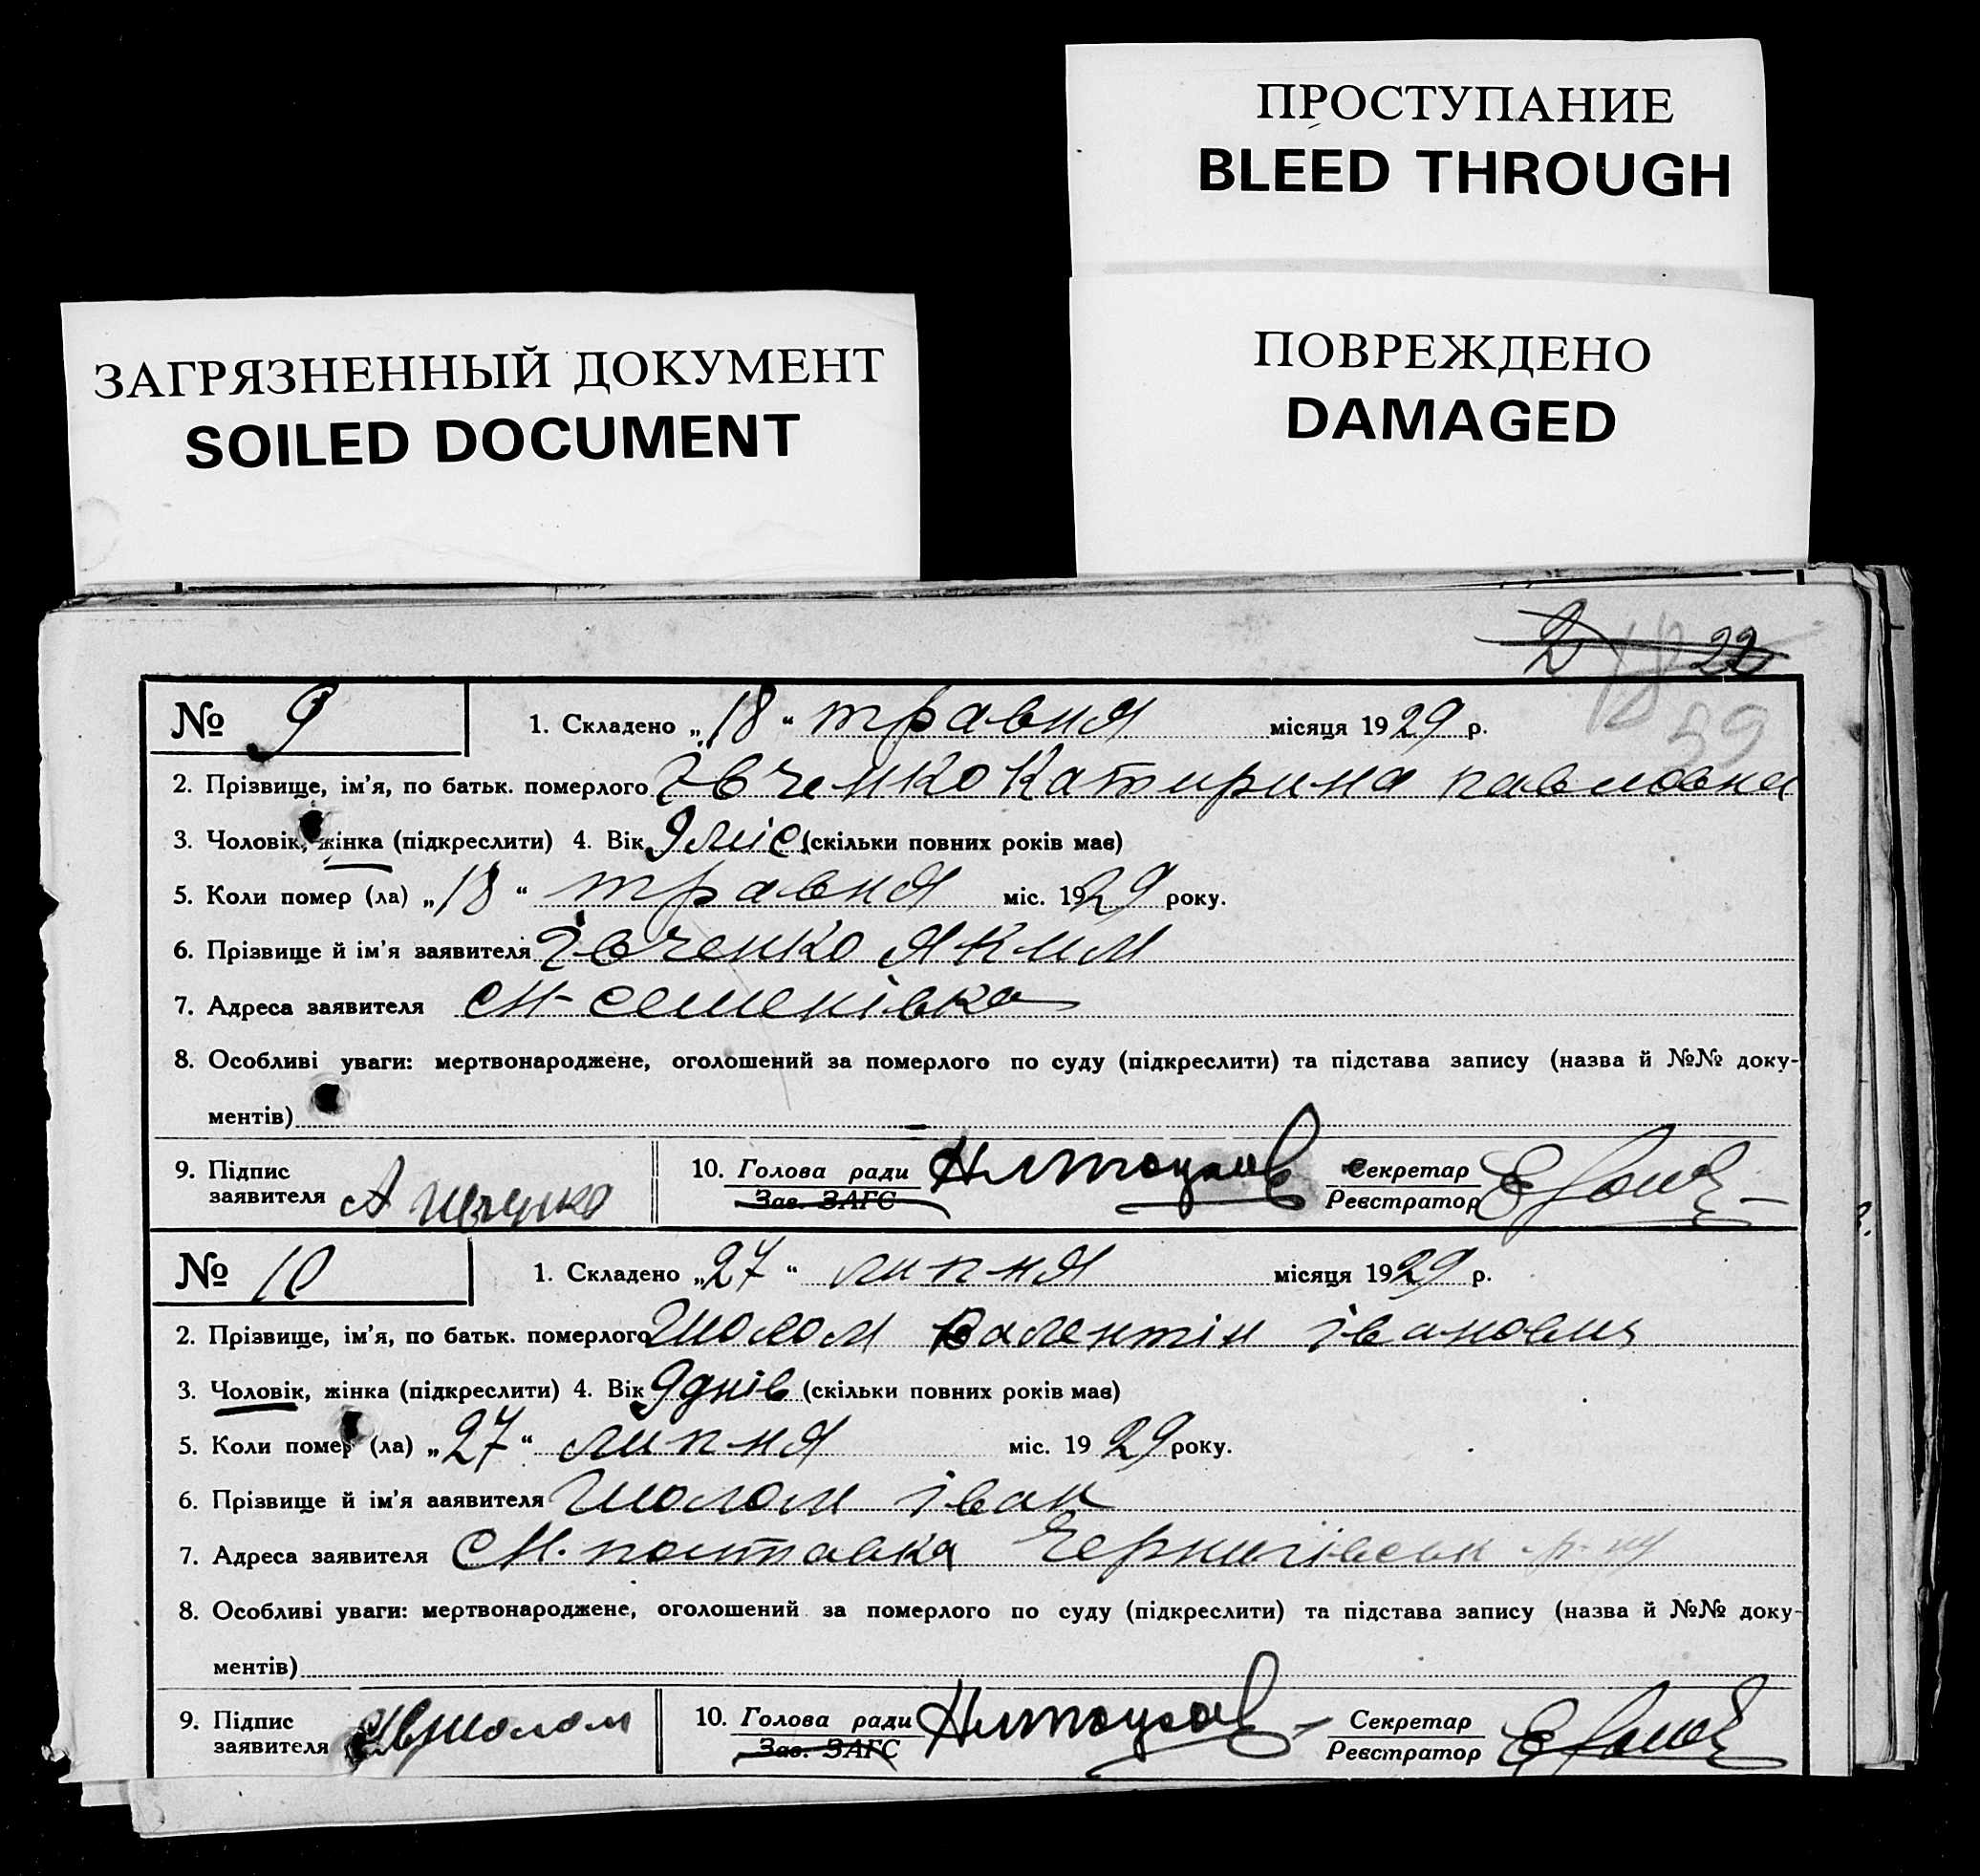 ПРОСТУПАНИЕ
BLEED THROUGH
ЗАГРЯЗНЕННЫЙ ДОКУМЕНТ
SOILED DOCUMENT
ПОВРЕЖДЕНО
DAMAGED
22
18
39
№ 9 1. Складено „18“ травня місяця 1929 р.
2. Прізвище, ім'я, по батьк. померлого Івченко Катирина павловна
3. Чоловік, жінка (підкреслити) 4. Вік 9 міс (скільки повних років має)
5. Коли помер (ла) „18“ травня міс. 1929 року.
6. Прізвище й ім'я заявителя Івченко Яким
7. Адреса заявителя см-семенівка
8. Особливі уваги: мертвонароджене, оголошений за померлого по суду (підкреслити) та підстава запису (назва й №№ доку-
ментів)
9. Підпис заявителя 10. Голова ради Секретар
Зав. ЗАГС Реєстратор
№ 10 1. Складено „27“ липня місяця 1929 р.
2. Прізвище, ім'я, по батьк. померлого Шолом Валентін іванович
3. Чоловік, жінка (підкреслити) 4. Вік 9 днів (скільки повних років має)
5. Коли помер (ла) „27“ липня міс. 1929 року.
6. Прізвище й ім'я ааявителя Шолом іван
7. Адреса заявителя см. полтавка Чернигівськ р-ну
8. Особливі уваги: мертвонароджене, оголошений за померлого по суду (підкреслити) та підстава запису (назва й №№ доку-
ментів)
9. Підпис заявителя Ів Шолом 10. Голова ради Секретар
Зав. ЗАГС Реєстратор